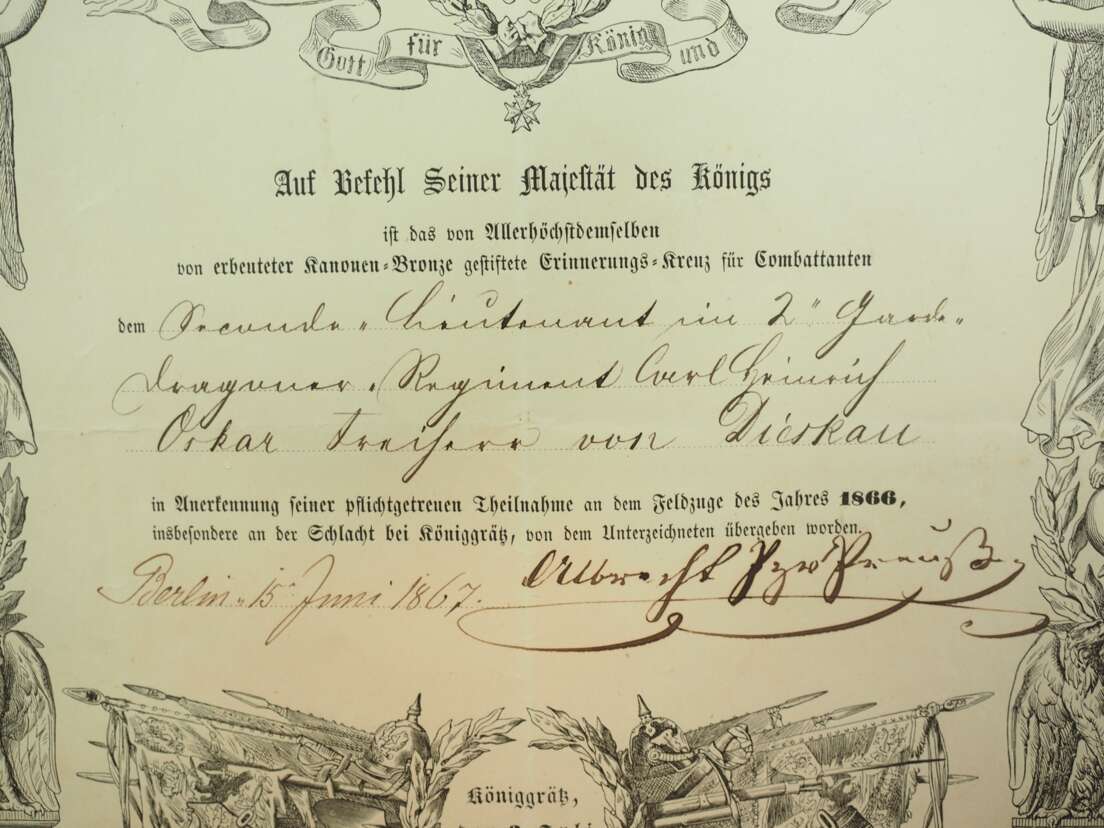 Gott für König und
Auf Befehl Seiner Majestät des Königs
ist das von Allerhöchstdemselben
von erbeuteter Kanonen-Bronze gestiftete Erinnerungs-Kreuz für Combattanten
dem Seconde-Lieutenant im 2ⁿ Garde-
Dragoner-Regiment Carl Heinrich
Oskar Freiherr von Dieskau
in Anerkennung seiner pflichtgetreuen Theilnahme an dem Feldzuge des Jahres 1866,
insbesondere an der Schlacht bei Königgrätz, von dem Unterzeichneten übergeben worden.
Berlin 15 Juni 1867.
Albrecht Pz v Preuß
Königgrätz,